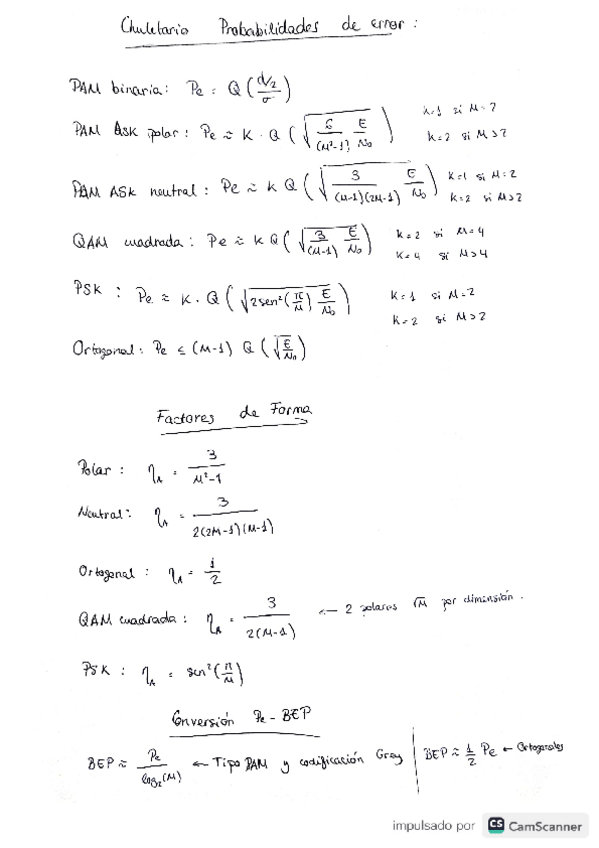 Chuletario Probabilidades de error:
PAM binaria: Pe = Q (d/2 / σ)
PAM ASK polar: Pe ≈ K · Q (√(6/(M²-1) E/N₀)) k=1 si M=2
k=2 si M>2
PAM ASK neutral: Pe ≈ k Q (√(3/((M-1)(2M-1)) E/N₀)) k=1 si M=2
k=2 si M>2
QAM cuadrada: Pe ≈ k Q (√(3/(M-1) E/N₀)) k=2 si M=4
k=4 si M>4
PSK: Pe ≈ K · Q (√(2sen²(π/M) E/N₀)) k=1 si M=2
k=2 si M>2
Ortogonal: Pe ≤ (M-1) Q (√(E/N₀))
Factores de Forma
Polar: η_A = 3/(M²-1)
Neutral: η_A = 3/(2(2M-1)(M-1))
Ortogonal: η_A = 1/2
QAM cuadrada: η_A = 3/(2(M-1)) ← 2 polares √M por dimensión.
PSK: η_A = sen²(π/M)
Conversión Pe - BEP
BEP ≈ Pe/log₂(M) ← Tipo PAM y codificación Gray | BEP ≈ 1/2 Pe ← Ortogonales
impulsado por CS CamScanner